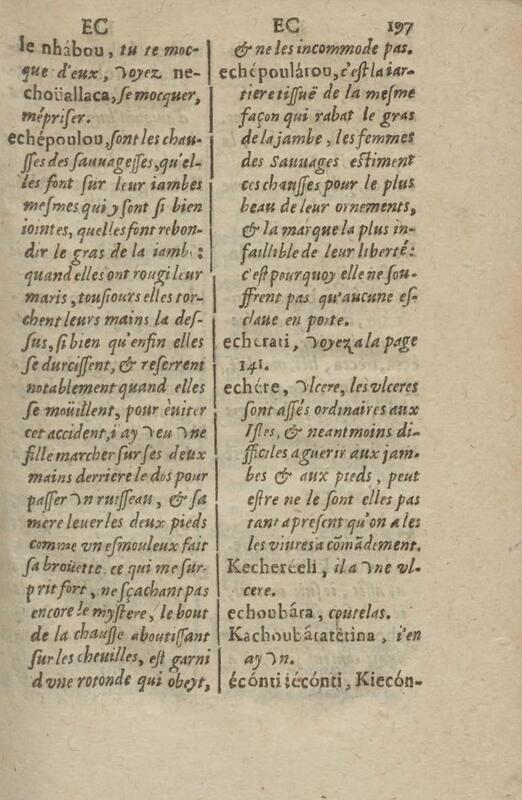 EC
le nhábou, tu te moc-
que d'eux, voyez ne-
choüallaca, se mocquer,
mépriser.
echépoulou, sont les chau-
sses des sauuagesses, qu'el-
les font sur leur iambes
mesmes qui y sont si bien
iointes, quelles font rebon-
dir le gras de la iambe:
quand elles ont rougi leur
maris, tousiours elles tor-
chent leurs mains la des-
sus, si bien qu'enfin elles
se durcissent, & reserrent
notablement quand elles
se moüillent, pour éuiter
cet accident, i ay veu vne
fille marcher sur ses deux
mains derriere le dos pour
passer vn ruisseau, & sa
mere leuer les deux pieds
comme vn esmouleux fait
sa broüette ce qui me sur-
prit fort, ne sçachant pas
encore le mystere, le bout
de la chausse aboutissant
sur les cheuilles, est garni
d vne rotonde qui obeyt,
EC 197
& ne les incommode pas.
echépoulátou, c'est la iar-
tiere tissuë de la mesme
façon qui rabat le gras
de la jambe, les femmes
des Sauuages estiment
ces chausses pour le plus
beau de leur ornements,
& la marque la plus in-
faillible de leur liberté:
c'est pourquoy elle ne sou-
ffrent pas qu'aucune es-
claue en porte.
echerati, voyez a la page
141.
echére, vlcere, les vlceres
sont assés ordinaires aux
Isles, & neantmoins di-
fficiles a guerir aux jam-
bes & aux pieds, peut
estre ne le sont elles pas
tant a present qu'on a les
les viures a cõmãdement.
Kecherceli, il a vne vl-
cere.
echoubára, coutelas.
Kachoubâratêtina, i'en
ay vn.
écónti iécónti, Kiecón-